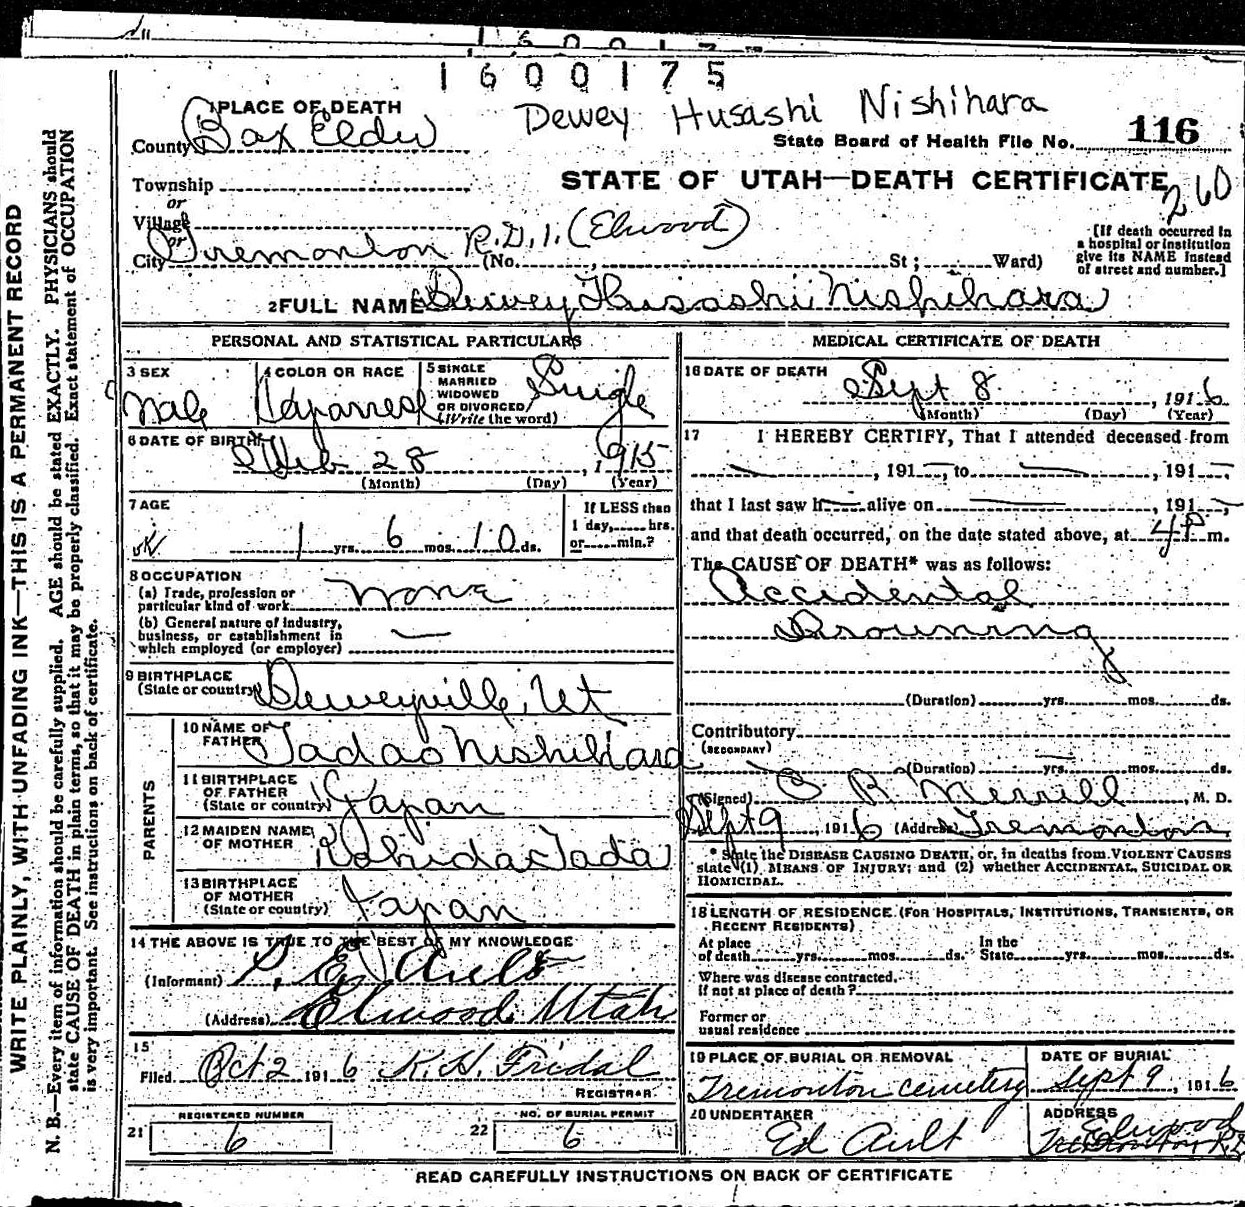 1600175
1 PLACE OF DEATH
Dewey Husashi Nishihara
County Box Elder
State Board of Health File No. 116
Township
STATE OF UTAH—DEATH CERTIFICATE
260
or
Village
or
City Tremonton R.D.1. (Elwood)
(No. , St; Ward)
[If death occurred in a hospital or institution give its NAME instead of street and number.]
2 FULL NAME Dewey Husashi Nishihara
PERSONAL AND STATISTICAL PARTICULARS
3 SEX
Male
4 COLOR OR RACE
Japanese
5 SINGLE MARRIED WIDOWED OR DIVORCED (Write the word)
Single
6 DATE OF BIRTH
Feb 28, 1915
(Month) (Day) (Year)
7 AGE
1 yrs. 6 mos. 10 ds.
If LESS than 1 day, hrs. or min.?
8 OCCUPATION
(a) Trade, profession or particular kind of work None
(b) General nature of industry, business, or establishment in which employed (or employer) —
9 BIRTHPLACE
(State or country) Deweyville, Ut
PARENTS
10 NAME OF FATHER Tadao Nishihara
11 BIRTHPLACE OF FATHER (State or country) Japan
12 MAIDEN NAME OF MOTHER Tada
13 BIRTHPLACE OF MOTHER (State or country) Japan
14 THE ABOVE IS TRUE TO THE BEST OF MY KNOWLEDGE
(Informant) Ed Ault
(Address) Elwood Utah
15
Filed Oct 2 1916 K. H. Fridal
REGISTRAR
REGISTERED NUMBER
21 6
NO. OF BURIAL PERMIT
22 6
MEDICAL CERTIFICATE OF DEATH
16 DATE OF DEATH
Sept 8, 1916
(Month) (Day) (Year)
17 I HEREBY CERTIFY, That I attended deceased from
—, 191—, to —, 191—
that I last saw h— alive on —, 191—,
and that death occurred, on the date stated above, at 4 P m.
The CAUSE OF DEATH* was as follows:
Accidental
Drowning
(Duration) yrs. mos. ds.
Contributory
(SECONDARY)
(Duration) yrs. mos. ds.
(Signed) R Merrill, M. D.
Sept 9, 1916 (Address) Tremonton
* State the DISEASE CAUSING DEATH, or, in deaths from VIOLENT CAUSES
state (1) MEANS OF INJURY; and (2) whether ACCIDENTAL, SUICIDAL OR
HOMICIDAL.
18 LENGTH OF RESIDENCE (FOR HOSPITALS, INSTITUTIONS, TRANSIENTS, OR
RECENT RESIDENTS)
At place of death yrs. mos. ds. In the State yrs. mos. ds.
Where was disease contracted, If not at place of death?
Former or usual residence
19 PLACE OF BURIAL OR REMOVAL
Tremonton cemetery
DATE OF BURIAL
Sept 9, 1916
20 UNDERTAKER
Ed Ault
ADDRESS
Elwood
Tremonton R.D
READ CAREFULLY INSTRUCTIONS ON BACK OF CERTIFICATE
WRITE PLAINLY, WITH UNFADING INK—THIS IS A PERMANENT RECORD
N. B.—Every item of information should be carefully supplied. AGE should be stated EXACTLY. PHYSICIANS should
state CAUSE OF DEATH in plain terms, so that it may be properly classified. Exact statement of OCCUPATION
is very important. See instructions on back of certificate.